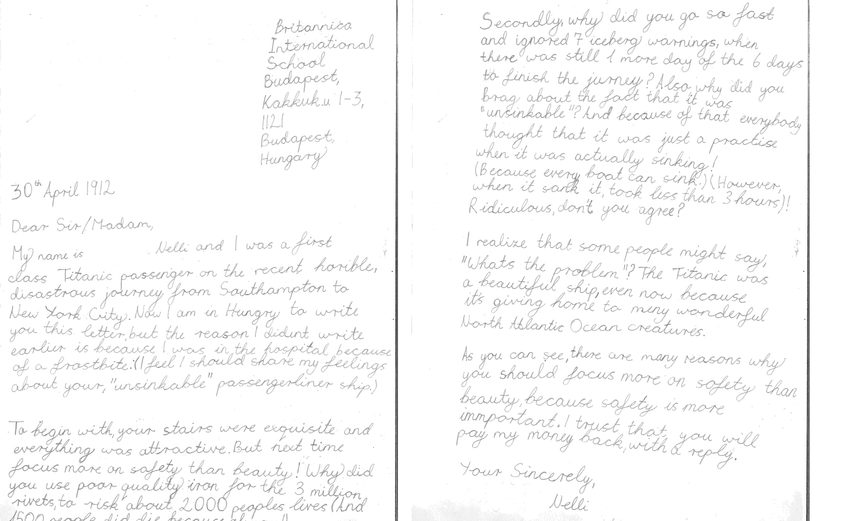 Britannica
International
School
Budapest,
Kakkuku 1-3,
1121
Budapest,
Hungary
30th April 1912
Dear Sir/Madam,
My name is Nelli and I was a first
class Titanic passenger on the recent horrible,
disastrous journey from Southampton to
New York City. Now I am in Hungry to write
you this letter, but the reason I didn't write
earlier is because I was in the hospital because
of a frostbite. (I feel I should share my feelings
about your, "unsinkable" passengerliner ship.)
To begin with, your stairs were exquisite and
everything was attractive. But next time
focus more on safety than beauty! (Why did
you use poor quality iron for the 3 million
rivets, to risk about 2000 peoples lives (And
1500 people did die because
Secondly, why did you go so fast
and ignored 7 iceberg warnings, when
there was still 1 more day of the 6 days
to finish the jurney? Also why did you
brag about the fact that it was
"unsinkable"? And because of that everybody
thought that it was just a practise
when it was actually sinking!
(Because every boat can sink.) (However,
when it sank it, took less than 3 hours)!
Ridiculous, don't you agree?
I realize that some people might say,
"Whats the problem"? The Titanic was
a beautiful ship, even now because
it's giving home to meny wonderful
North Atlantic Ocean creatures.
As you can see, there are many reasons why
you should focus more on safety than
beauty, because safety is more
immportant. I trust that, you will
pay my money back, with a reply.
Your Sincerely,
Nelli